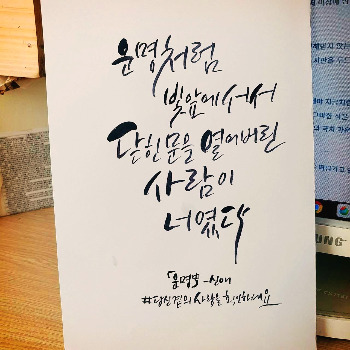 운명처럼
빛앞에 서서
닫힌 문을 열어버린
사람이
너였다
「운명」 -신애
#당신곁의 사랑을 확인하세요
SAMSUNG